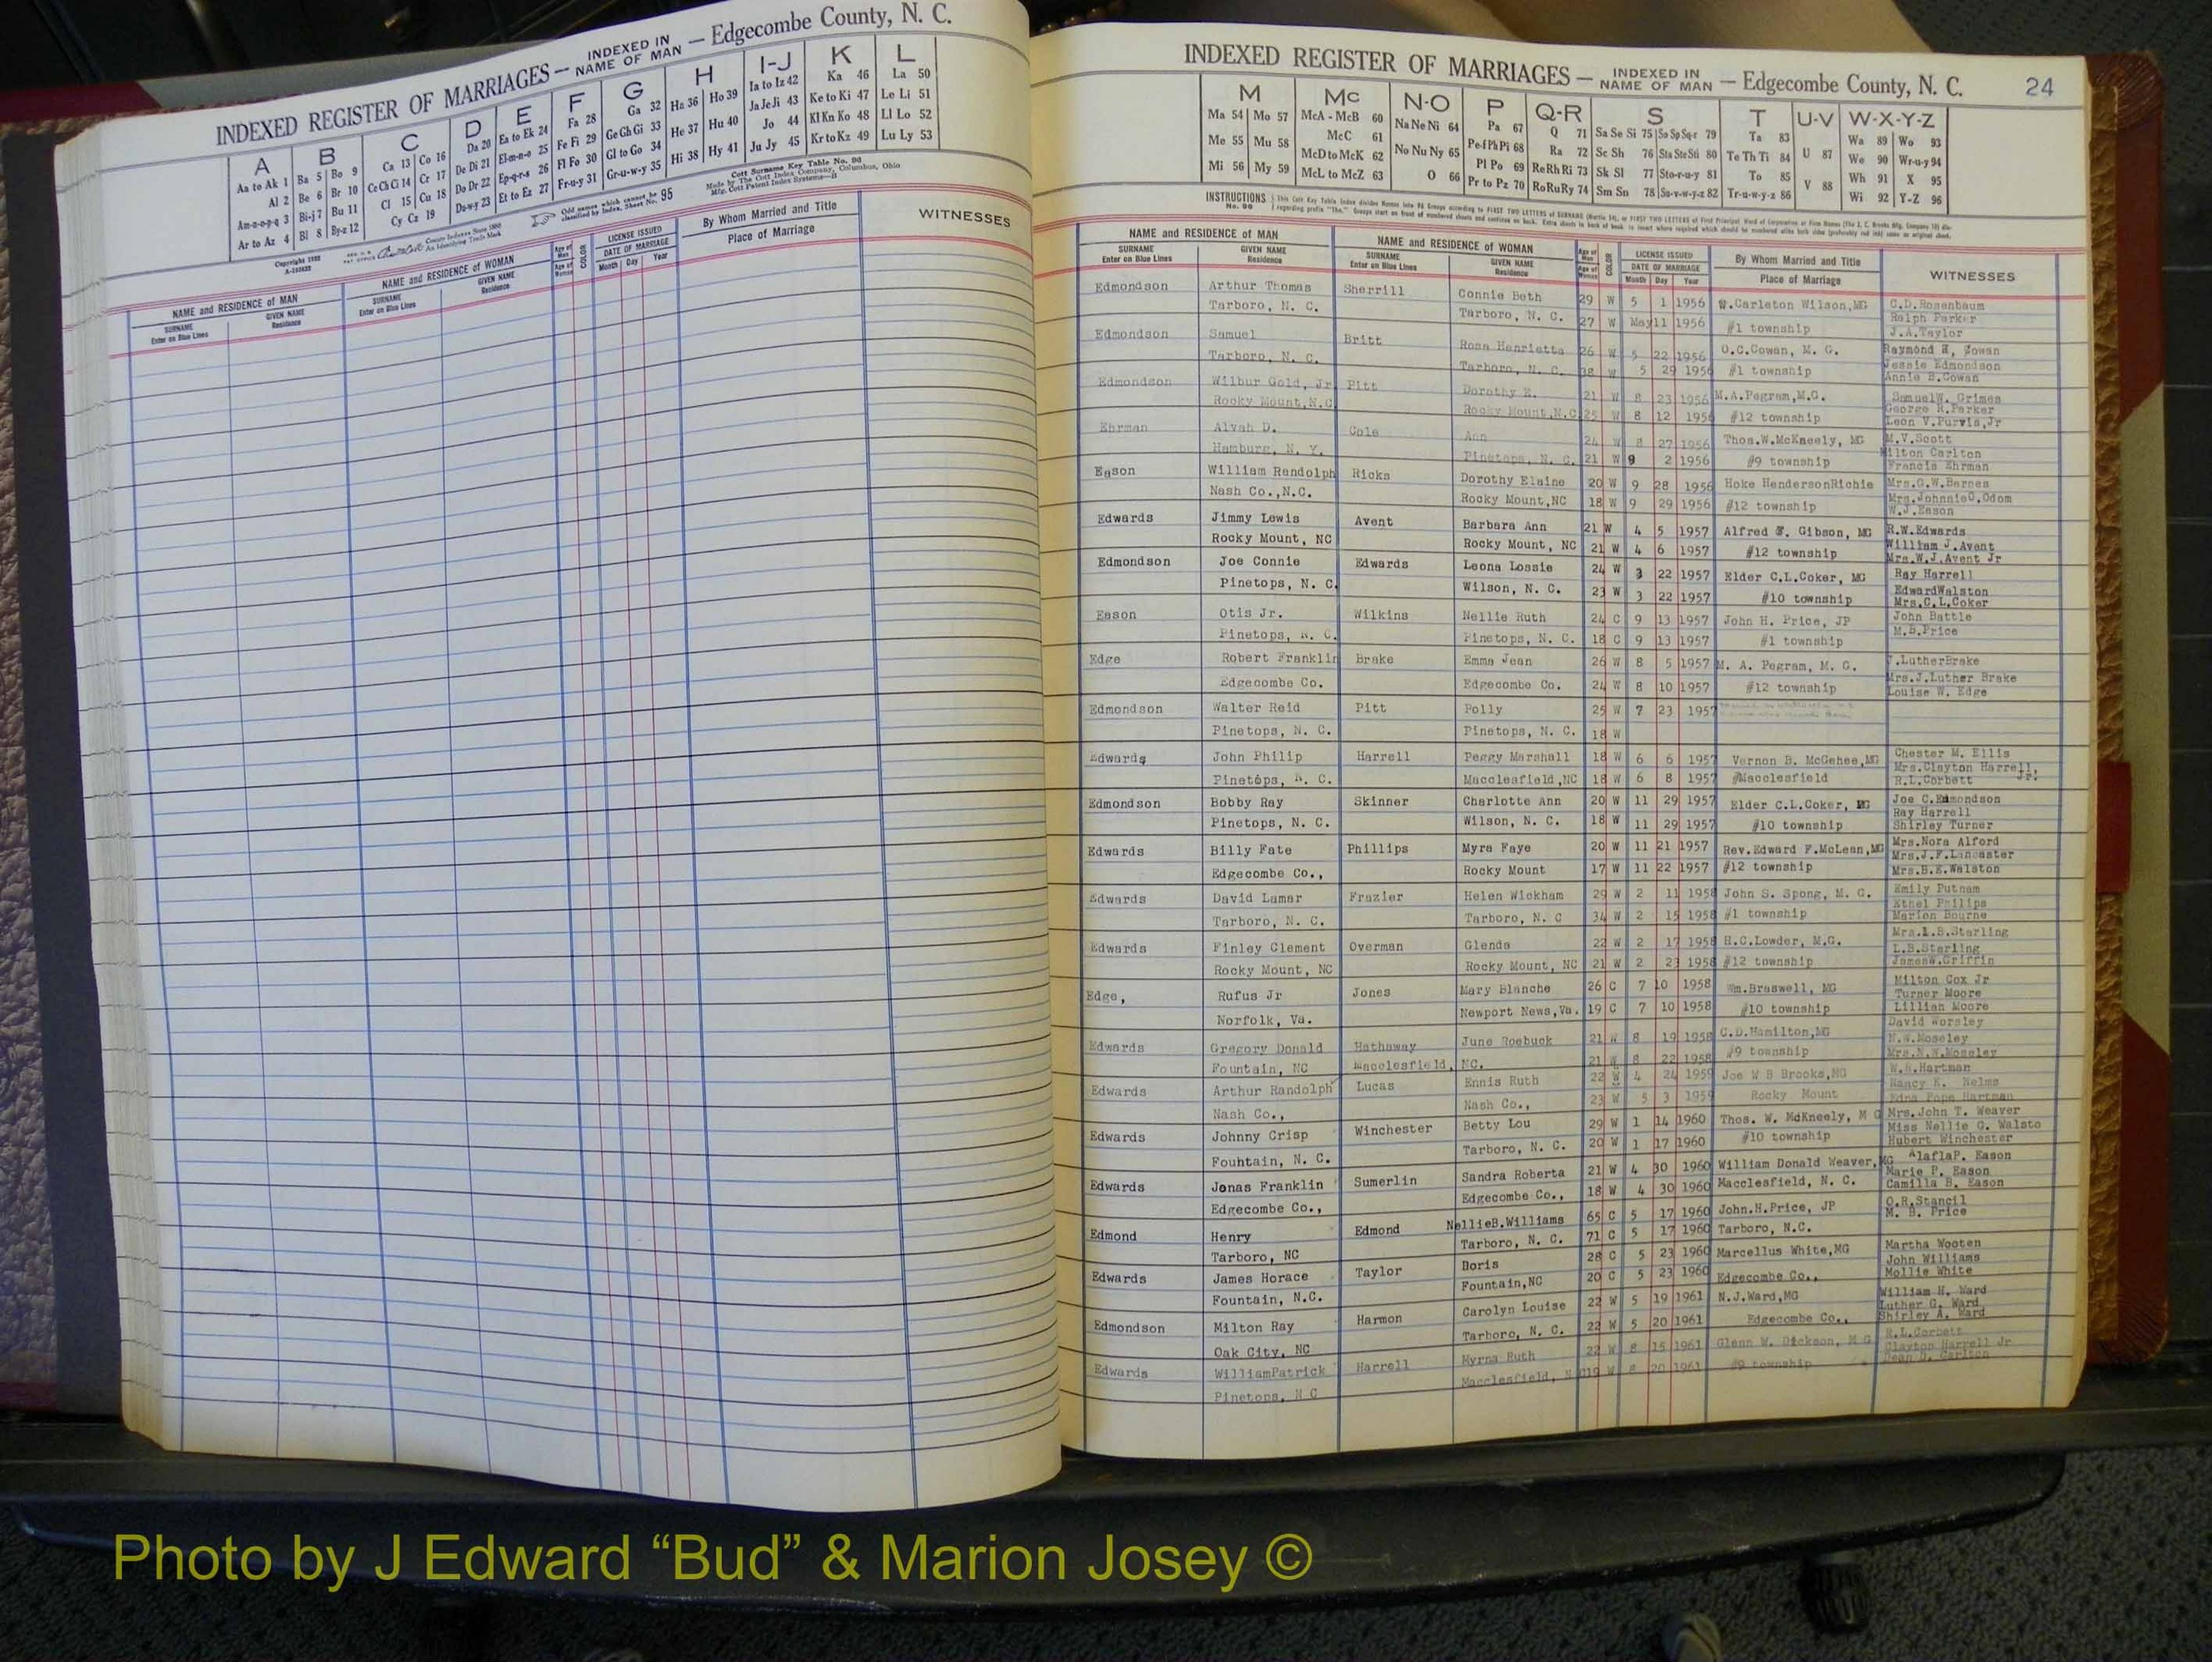 INDEXED REGISTER OF MARRIAGES — INDEXED IN NAME OF MAN — Edgecombe County, N. C.
A B C D E F G H I-J K L
Aa to Ak 1 Ba 5 Bo 9 Ca 13 Co 16 Da 20 Ea to Ek 24 Fa 28 Ga 32 Ha 36 Ho 39 Ia to Iz 42 Ka 46 La 50
Al 2 Be 6 Br 10 Ce Ch Ci 14 Cr 17 De Di 21 El-m-n-o 25 Fe Fi 29 Ge Gh Gi 33 He 37 Hu 40 Ja Je Ji 43 Ke to Ki 47 Le Li 51
Am-n-o-p-q 3 Bi-j 7 Bu 11 Cl 15 Cu 18 Do Dr 22 Ep-q-r-s 26 Fl Fo 30 Gl to Go 34 Hi 38 Hy 41 Jo 44 Kl Kn Ko 48 Ll Lo 52
Ar to Az 4 Bl 8 By-z 12 Cy Cz 19 Du-w-y 23 Et to Ez 27 Fr-u-y 31 Gr-u-w-y 35 Ju Jy 45 Kr to Kz 49 Lu Ly 53
Odd names which cannot be classified by Index, Sheet No. 95
Cott Surname Key Table No. 96
Made by The Cott Index Company, Columbus, Ohio
NAME and RESIDENCE of MAN
SURNAME Enter on Blue Lines GIVEN NAME Residence
NAME and RESIDENCE of WOMAN
SURNAME Enter on Blue Lines GIVEN NAME Residence
Age of Man Age of Woman COLOR
LICENSE ISSUED DATE OF MARRIAGE Month Day Year
By Whom Married and Title Place of Marriage
WITNESSES
INDEXED REGISTER OF MARRIAGES — INDEXED IN NAME OF MAN — Edgecombe County, N. C. 24
M Mc N-O P Q-R S T U-V W-X-Y-Z
Ma 54 Mo 57 McA - McB 60 Na Ne Ni 64 Pa 67 Q 71 Sa Se Si 75 So Sp Sq-r 79 Ta 83 Wa 89 Wo 93
Me 55 Mu 58 McC 61 No Nu Ny 65 Pe-f Ph Pi 68 Ra 72 Sc Sh 76 Sta Ste Sti 80 Te Th Ti 84 U 87 We 90 Wr-u-y 94
Mi 56 My 59 McD to McK 62 O 66 Pl Po 69 Re Rh Ri 73 Sk Sl 77 Sto-r-u-y 81 To 85 V 88 Wh 91 X 95
McL to McZ 63 Pr to Pz 70 Ro Ru Ry 74 Sm Sn 78 Su-v-w-y-z 82 Tr-u-w-y-z 86 Wi 92 Y-Z 96
INSTRUCTIONS
NAME and RESIDENCE OF MAN
SURNAME Enter on Blue Lines GIVEN NAME Residence
NAME and RESIDENCE of WOMAN
SURNAME Enter on Blue Lines GIVEN NAME Residence
Age of Man Age of Woman COLOR
LICENSE ISSUED DATE OF MARRIAGE Month Day Year
By Whom Married and Title Place of Marriage
WITNESSES
Edmondson Arthur Thomas Sherrill Connie Beth 29 W 5 1 1956 W.Carleton Wilson,MG C.D.Rosenbaum
Tarboro, N. C. Tarboro, N. C. 27 W May 11 1956 #1 township Ralph Parker
J.A.Taylor
Edmondson Samuel Britt Rosa Henrietta 26 W 5 22 1956 O.C.Cowan, M. G. Raymond H, Cowan
Tarboro, N. C. Tarboro, N. C. 38 W 5 29 1956 #1 township Jessie Edmondson
Annie B.Cowan
Edmondson Wilbur Gold, Jr Pitt Dorothy E. 21 W 8 23 1956 M.A.Pegram,M.G. SamuelW. Grimes
Rocky Mount,N.C Rocky Mount,N.C 25 W 8 12 1956 #12 township George R.Parker
Leon V.Purvis,Jr
Ehrman Alvah D. Cole Ann 24 W 8 27 1956 Thos.W.McKneely, MG M.V.Scott
Hamburg, N. Y. Pinetops, N. C. 21 W 9 2 1956 #9 township Milton Carlton
Francis Ehrman
Eason William Randolph Ricks Dorothy Elaine 20 W 9 28 1956 Hoke HendersonRichie Mrs.G.W.Barnes
Nash Co.,N.C. Rocky Mount,NC 18 W 9 29 1956 #12 township Mrs.JohnnieO.Odom
W.J.Eason
Edwards Jimmy Lewis Avent Barbara Ann 21 W 4 5 1957 Alfred E. Gibson, MG R.W.Edwards
Rocky Mount, NC Rocky Mount, NC 21 W 4 6 1957 #12 township William J.Avent
Mrs.W.J.Avent Jr
Edmondson Joe Connie Edwards Leona Lossie 24 W 3 22 1957 Elder C.L.Coker, MG Ray Harrell
Pinetops, N. C. Wilson, N. C. 23 W 3 22 1957 #10 township EdwardWalston
Mrs.C.L.Coker
Eason Otis Jr. Wilkins Nellie Ruth 24 C 9 13 1957 John H. Price, JP John Battle
Pinetops, N. C. Pinetops, N. C. 18 C 9 13 1957 #1 township M.B.Price
Edge Robert Franklin Brake Emma Jean 26 W 8 5 1957 M. A. Pegram, M. G. J.LutherBrake
Edgecombe Co. Edgecombe Co. 24 W 8 10 1957 #12 township Mrs.J.Luther Brake
Louise W. Edge
Edmondson Walter Reid Pitt Polly 25 W 7 23 1957
Pinetops, N. C. Pinetops, N. C. 18 W
Edwards John Philip Harrell Peggy Marshall 18 W 6 6 1957 Vernon B. McGehee,MG Chester M. Ellis
Pinetops, N. C. Macclesfield,NC 18 W 6 8 1957 #Macclesfield Mrs.Clayton Harrell, Jr.
R.L.Corbett
Edmondson Bobby Ray Skinner Charlotte Ann 20 W 11 29 1957 Elder C.L.Coker, MG Joe C.Edmondson
Pinetops, N. C. Wilson, N. C. 18 W 11 29 1957 #10 township Ray Harrell
Shirley Turner
Edwards Billy Fate Phillips Myra Faye 20 W 11 21 1957 Rev.Edward F.McLean,MG Mrs.Nora Alford
Edgecombe Co., Rocky Mount 17 W 11 22 1957 #12 township Mrs.J.F.Lancaster
Mrs.B.E.Walston
Edwards David Lamar Frazier Helen Wickham 29 W 2 11 1958 John S. Spong, M. G. Emily Putnam
Tarboro, N. C. Tarboro, N. C 34 W 2 15 1958 #1 township Ethel Philips
Marion Bourne
Edwards Finley Clement Overman Glenda 22 W 2 17 1958 H.C.Lowder, M.G. Mrs.L.B.Starling
Rocky Mount, NC Rocky Mount, NC 21 W 2 23 1958 #12 township L.B.Starling
JamesW.Griffin
Edge, Rufus Jr Jones Mary Blanche 26 C 7 10 1958 Wm.Braswell, MG Milton Cox Jr
Norfolk, Va. Newport News,Va. 19 C 7 10 1958 #10 township Turner Moore
Lillian Moore
Edwards Gregory Donald Hathaway June Roebuck 21 W 8 19 1958 C.D.Hamilton,MG David Worsley
Fountain, NC Macclesfield, NC. 21 W 8 22 1958 #9 township N.W.Moseley
Mrs.N.W.Moseley
Edwards Arthur Randolph Lucas Ennis Ruth 22 W 4 24 1959 Joe W B Brooks,MG W.H.Hartman
Nash Co., Nash Co., 23 W 5 3 1959 Rocky Mount Nancy K. Nelms
Edna Pope Hartman
Edwards Johnny Crisp Winchester Betty Lou 29 W 1 14 1960 Thos. W. McKneely, M G Mrs.John T. Weaver
Fouhtain, N. C. Tarboro, N. C. 20 W 1 17 1960 #10 township Miss Nellie G. Walsto
Hubert Winchester
Edwards Jonas Franklin Sumerlin Sandra Roberta 21 W 4 30 1960 William Donald Weaver,MG AlaflaP. Eason
Edgecombe Co., Edgecombe Co., 18 W 4 30 1960 Macclesfield, N. C. Marie P. Eason
Camilla B. Eason
Edmond Henry Edmond NellieB.Williams 65 C 5 17 1960 John.H.Price, JP O.R.Stancil
Tarboro, NC Tarboro, N. C. 71 C 5 17 1960 Tarboro, N.C. M. B. Price
Edwards James Horace Taylor Doris 28 C 5 23 1960 Marcellus White,MG Martha Wooten
Fountain, N.C. Fountain,NC 20 C 5 23 1960 Edgecombe Co., John Williams
Mollie White
Edmondson Milton Ray Harmon Carolyn Louise 22 W 5 19 1961 N.J.Ward,MG William H. Ward
Oak City, NC Tarboro, N. C. 22 W 5 20 1961 Edgecombe Co., Luther G. Ward
Shirley A. Ward
Edwards WilliamPatrick Harrell Myrna Ruth 22 W 8 15 1961 Glenn W. Dickson, M G R.L.Corbett
Pinetops, N C Macclesfield, N C 19 W 8 20 1961 #9 township Clayton Harrell Jr
Dean D. Carlton
Photo by J Edward “Bud” & Marion Josey ©